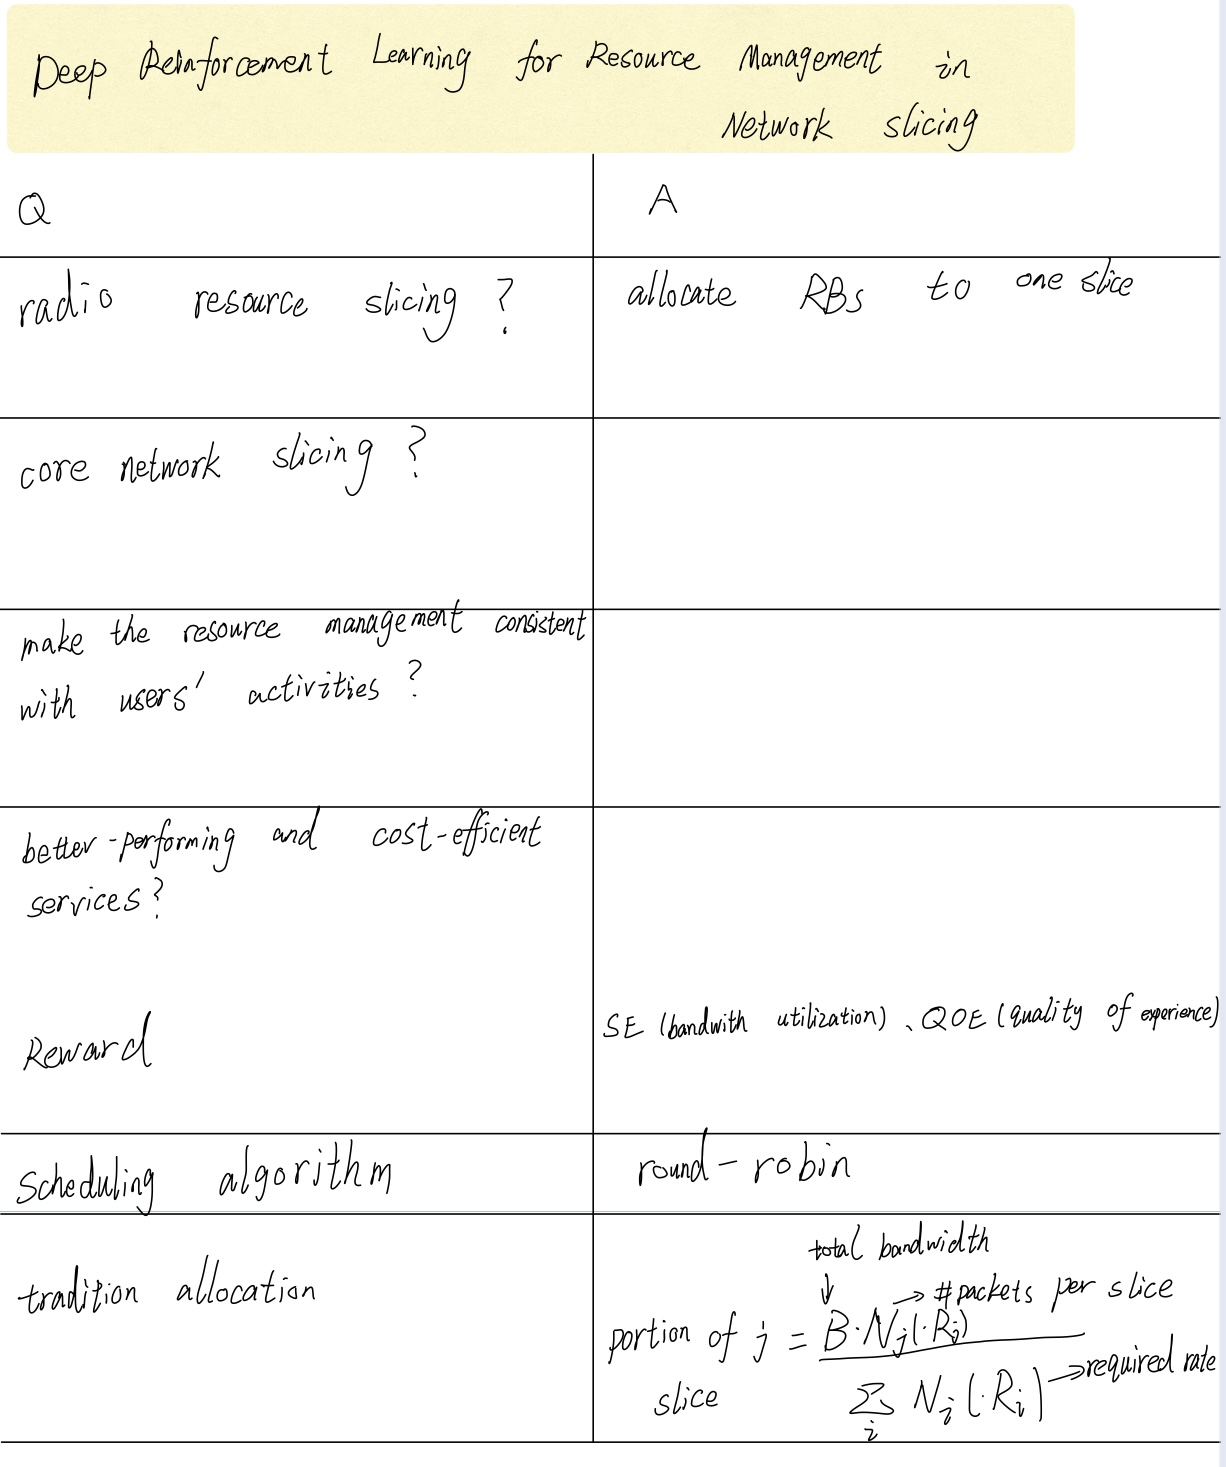 Deep Reinforcement Learning for Resource Management in
Network slicing
Q
A
radio resource slicing ?
allocate RBs to one slice
core network slicing ?
make the resource management consistent
with users' activities ?
better-performing and cost-efficient
services?
Reward
SE (bandwith utilization) 、QOE (quality of experience)
Scheduling algorithm
round-robin
tradition allocation
total bandwidth
↓
→ #packets per slice
portion of j = B·Nj(·Rj)
slice
∑i Ni(·Ri) → required rate